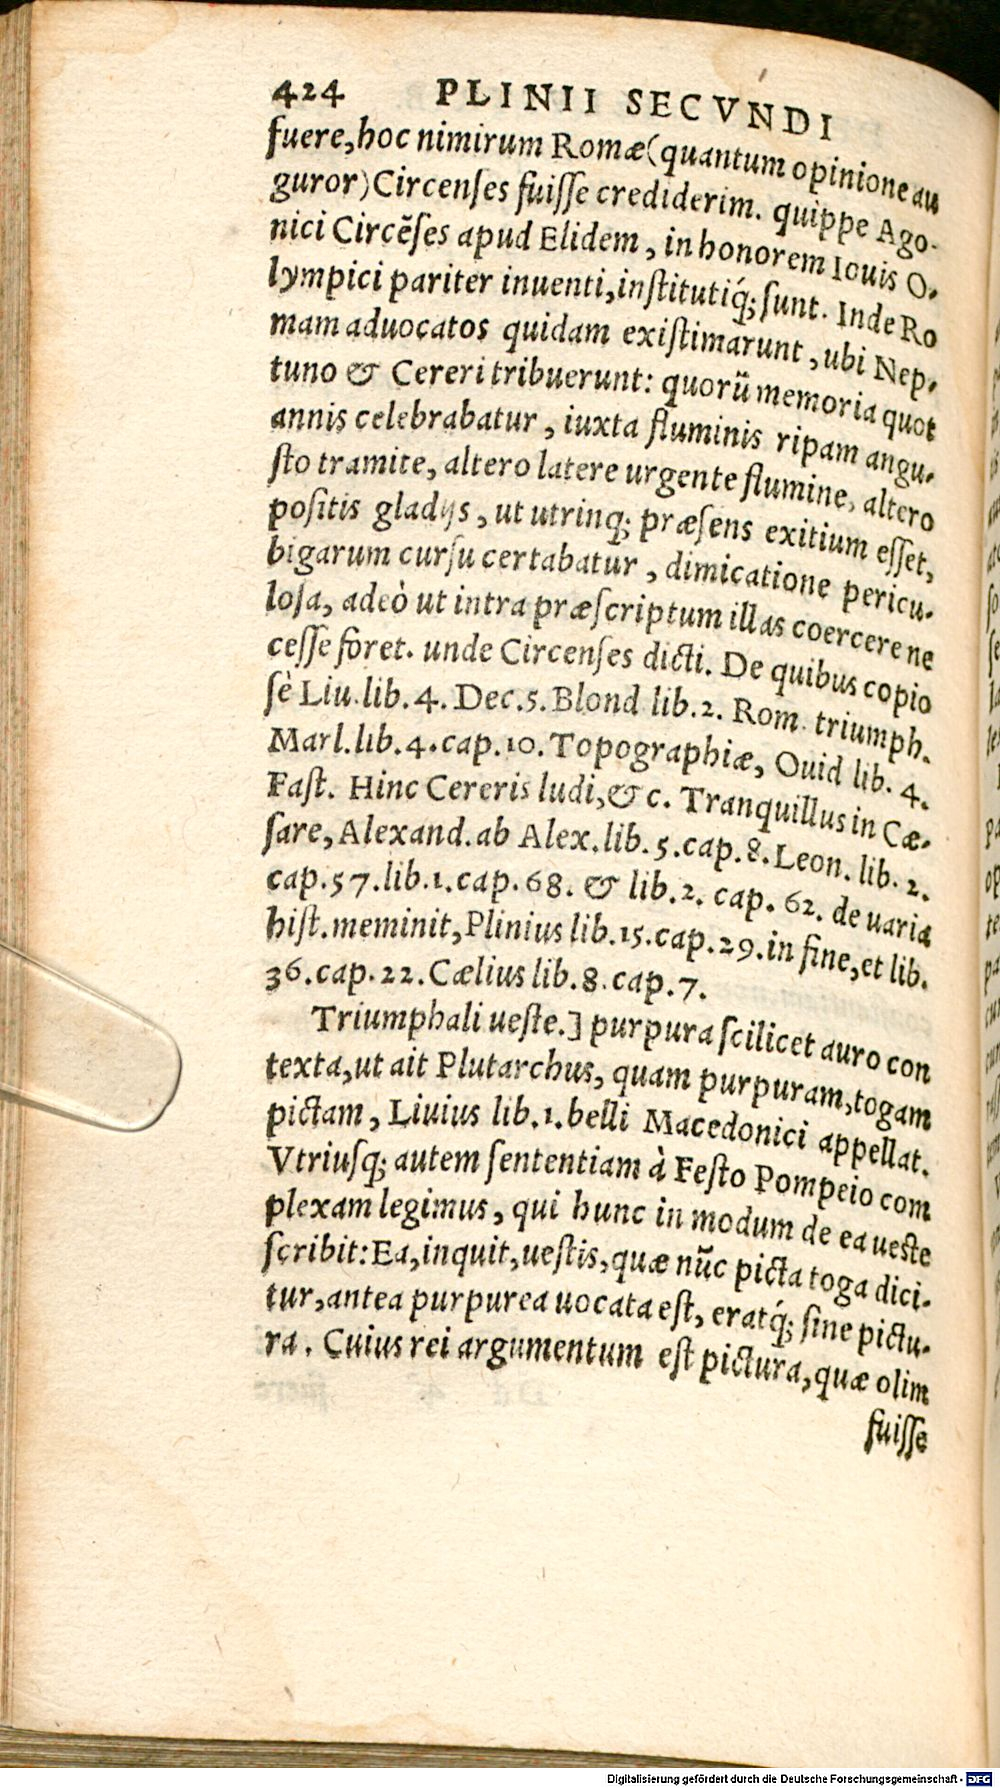 424 PLINII SECVNDI
fuere, hoc nimirum Romæ (quantum opinione au
guror) Circenſes fuiſſe crediderim. quippe Ago-
nici Circẽſes apud Elidem, in honorem Iouis O-
lympici pariter inuenti, inſtitutiq́; ſunt. Inde Ro
mam aduocatos quidam exiſtimarunt, ubi Nep-
tuno & Cereri tribuerunt: quorũ memoria quot
annis celebrabatur, iuxta fluminis ripam angu-
ſto tramite, altero latere urgente flumine, altero
poſitis gladijs, ut utrinq; præſens exitium eſſet,
bigarum curſu certabatur, dimicatione pericu-
loſa, adeò ut intra præſcriptum illas coercere ne
ceſſe foret. unde Circenſes dicti. De quibus copio
ſè Liu. lib. 4. Dec. 5. Blond lib. 2. Rom. triumph.
Marl. lib. 4. cap. 10. Topographiæ, Ouid lib. 4.
Faſt. Hinc Cereris ludi, & c. Tranquillus in Cæ-
ſare, Alexand. ab Alex. lib. 5. cap. 8. Leon. lib. 2.
cap. 57. lib. 1. cap. 68. & lib. 2. cap. 62. de uaria
hiſt. meminit, Plinius lib. 15. cap. 29. in fine, et lib.
36. cap. 22. Cælius lib. 8. cap. 7.
Triumphali ueſte.] purpura ſcilicet auro con
texta, ut ait Plutarchus, quam purpuram, togam
pictam, Liuius lib. 1. belli Macedonici appellat.
Vtriuſq; autem ſententiam à Feſto Pompeio com
plexam legimus, qui hunc in modum de ea ueſte
ſcribit: Ea, inquit, ueſtis, quæ nũc picta toga dici-
tur, antea purpurea uocata eſt, eratq́; ſine pictu-
ra. Cuius rei argumentum eſt pictura, quæ olim
fuiſſe
Digitalisierung gefördert durch die Deutsche Forschungsgemeinschaft - DFG